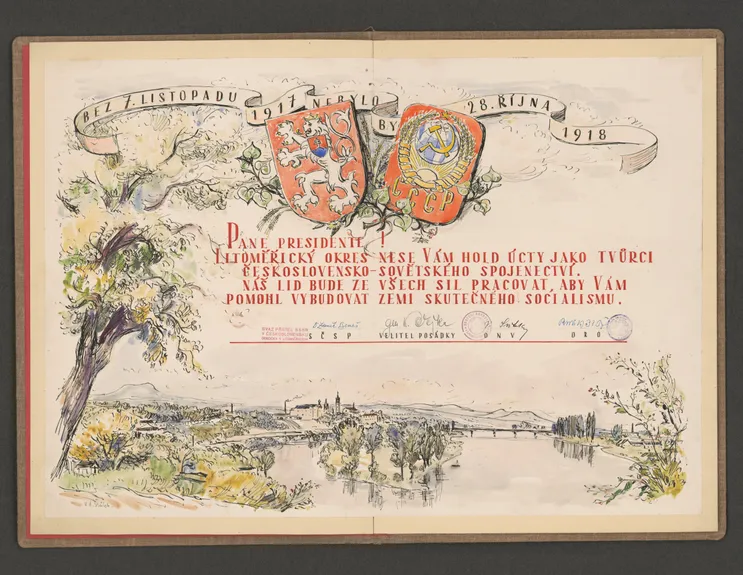 BEZ 7. LISTOPADU 1917 NEBYLO BY 28. ŘÍJNA 1918
СССР
PANE PRESIDENTE !
LITOMĚŘICKÝ OKRES NESE VÁM HOLD ÚCTY JAKO TVŮRCI
ČESKOSLOVENSKO-SOVĚTSKÉHO SPOJENECTVÍ.
NÁŠ LID BUDE ZE VŠECH SIL PRACOVAT, ABY VÁM
POMOHL VYBUDOVAT ZEMI SKUTEČNÉHO SOCIALISMU.
SČSP VELITEL POSÁDKY ONV ORO